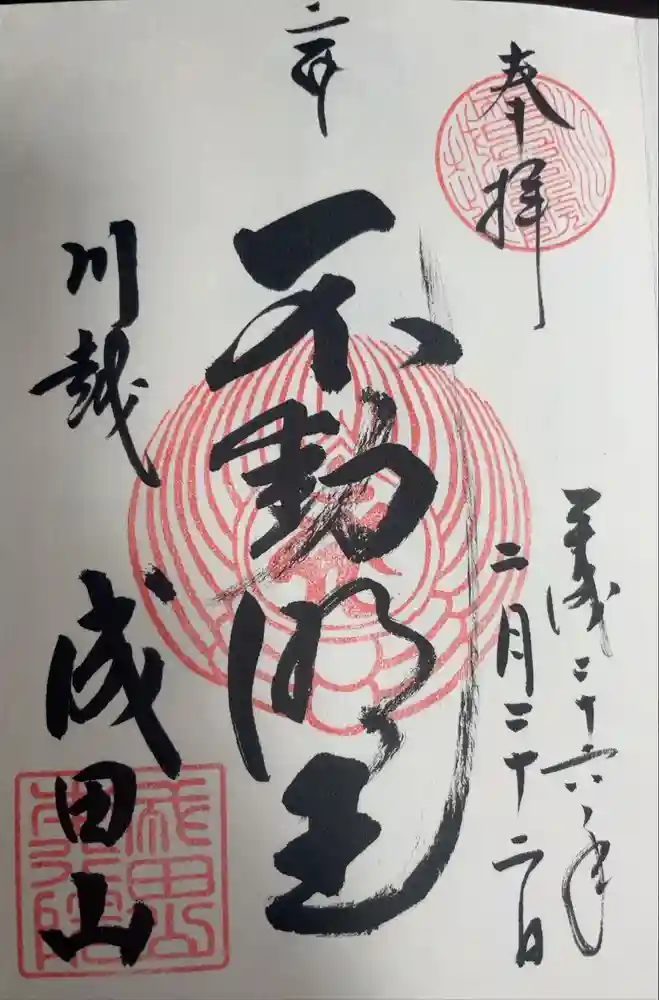 奉拝
平成二十六年
二月二十二日
不動明王
川越 成田山
成田山
本行院